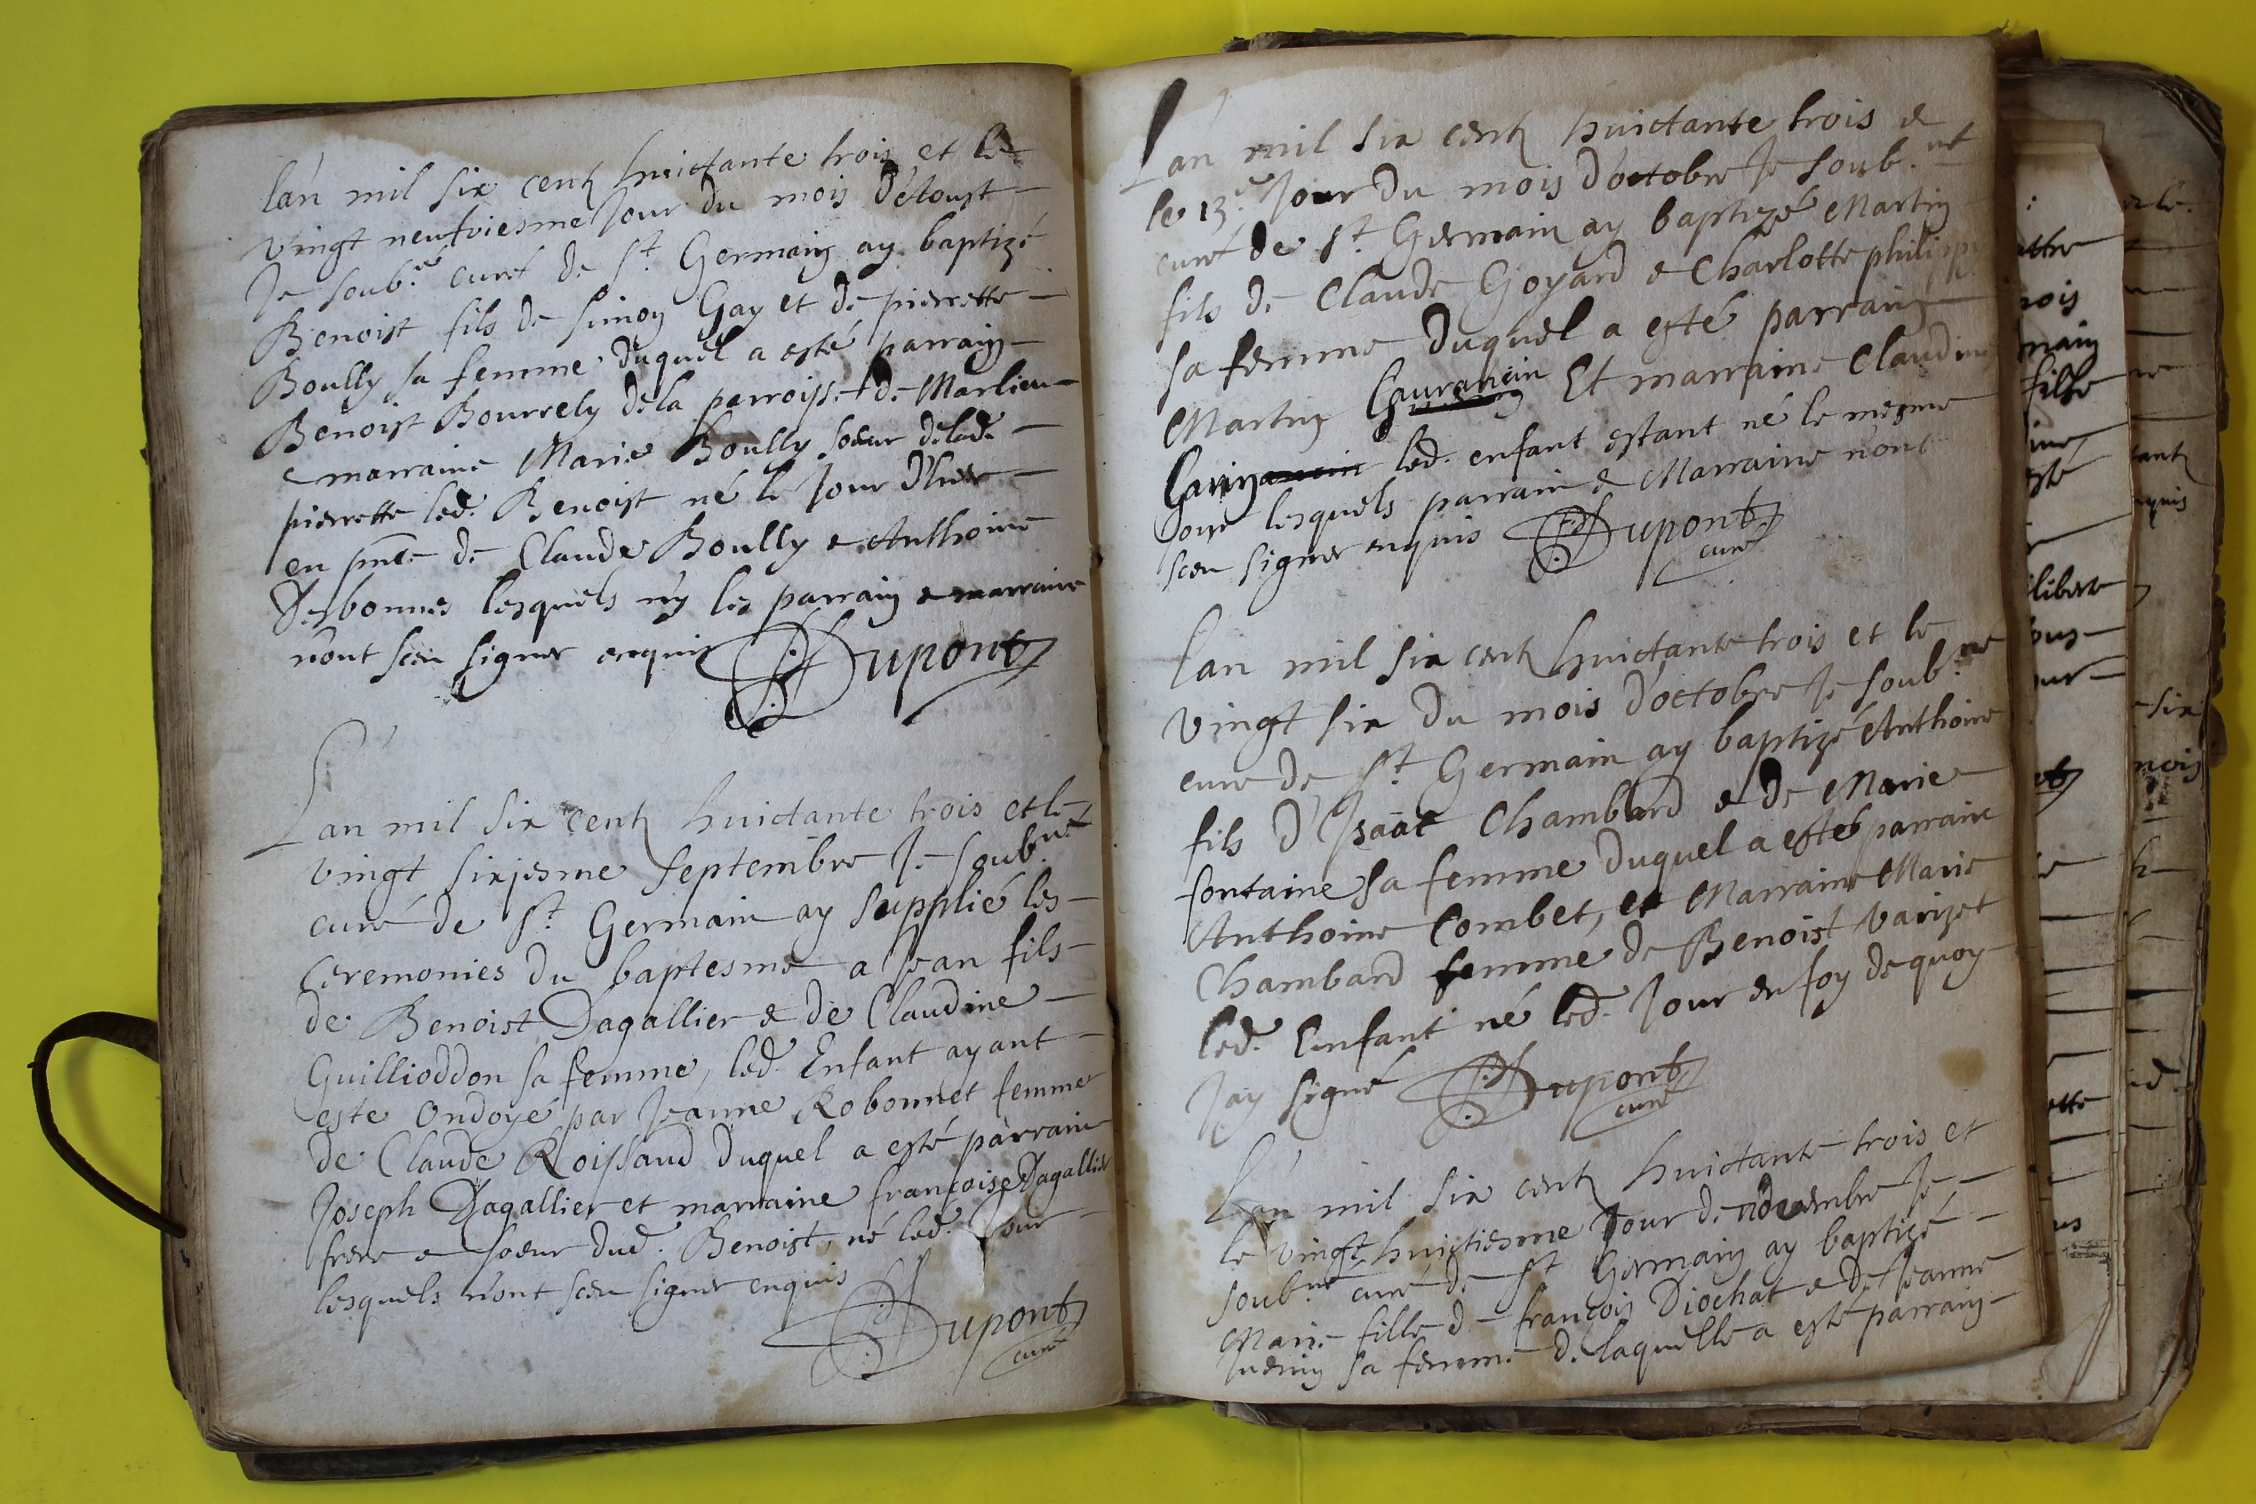 lan mil six centz huictante trois et le
vingt neufviesme Jour du mois d'Aoust
Je soub.né curé de St. Germain ay baptizé
Benoist fils de Simon Gay et de pierrette
Boully sa femme duquel a esté parrain
Benoist Bourrely dela parroisse de Marlieu
e marraine Marie Boully soeur delad.
pierrette led. Benoist né le Jour d'hier
en pnce de Claude Boully e Anthoine
Desbonnes lesquels ny les parrain e marraine
n'ont sceu signer enquis Dupont
Lan mil six centz huictante trois et le
vingt sixjesme septembre Je soub.né
curé de St. Germain ay supplié les
Ceremonies du baptesme a Jean fils
de Benoist Dagallier e de Claudine
Guillioddon sa femme, led. Enfant ayant
este Ondoyé par Jeanne Robonnet femme
de Claude Roissaud duquel a esté parrain
Joseph Dagallier et marraine françoise Dagallier
frere e soeur dud. Benoist, né led. Jour
lesquels n'ont sceu signer enquis
Dupont
curé
Lan mil six centz huictante trois e
le 13.e Jour Du mois D'octobre Je soub.né
curé de St. Germain ay baptizé Martin
fils de Claude Goyard e Charlotte philipp
sa femme Duquel a esté parrain
Martin Et marraine Claudine
led. enfant estant né le mesme
Jour lesquels parrain e Marraine n'ont
sceu signer enquis Dupont
curé
lan mil six centz huictante trois et le
vingt six Du mois D'octobre Je soub.né
curé de St. Germain ay baptizé Anthoine
fils D'Isaac Chambard e de Marie
fontaine sa femme Duquel a esté parrain
Anthoine Combet, et Marraine Marie
Chambard femme de Benoist Varizet
led. Enfant né led. Jour en foy de quoy
Jay signé Dupont
curé
Lan mil six centz huictante trois et
le vingt huictiesme Jour de novembre Je
soub.né curé de St Germain ay baptizé
Marie fille de françois Diochat e de Jeanne
Juenin sa femme de laquelle a esté parrain